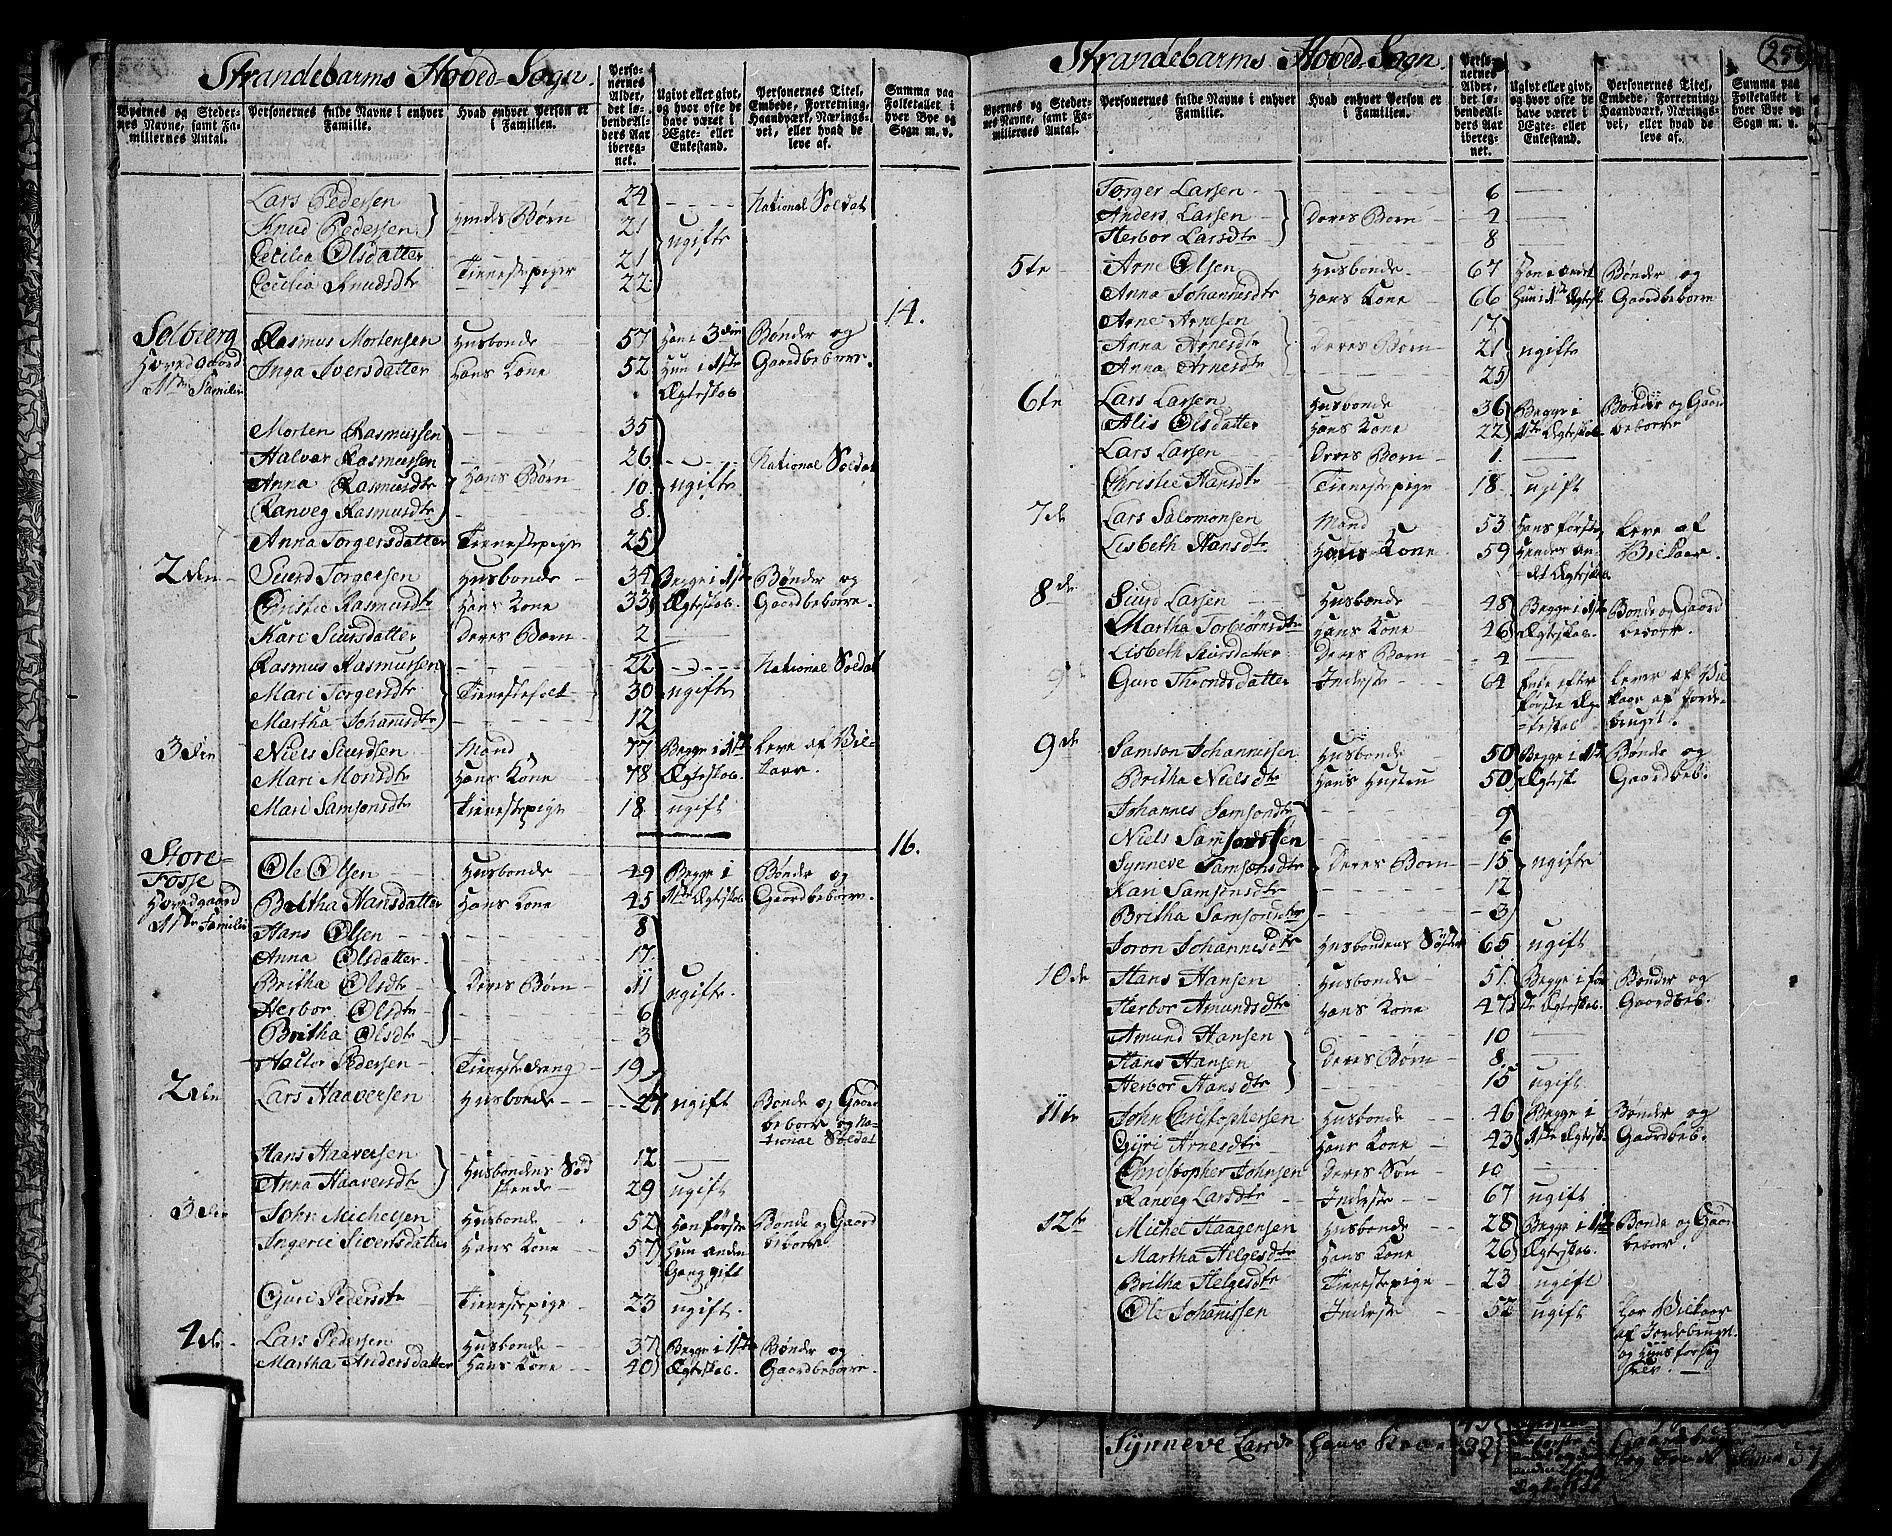 Strandebarms Hoved-Sogn.
Byernes og Stedernes Navne, samt Familiernes Antal.
Personernes fulde Navne i enhver Familie.
Hvad enhver Person er i Familien.
Personernes Alder, det løbende Alders Aar iberegnet.
Ugivt eller givt, og hvor ofte de have været i Ægte- eller Enkestand.
Personernes Titel, Embede, Forretning, Haandværk, Næringsvei, eller hvad de leve af.
Summa paa Folketallet i hver Bye og Sogn m. v.
Lars Pedersen 24 National Soldat
Knud Pedersen hendes Børn 21 ugifte
Cecilia Olsdatter 21
Cecilia Knudsdtr Tienestepiger 22
14.
Solbierg Rasmus Mortensen Husbonde 57 Han i 3die Bønder og
Hovedgaard Inga Iversdatter Hans Kone 52 Hun i 1ste Gaardbeboere.
1ste Familie Ægteskab
Morten Rasmussen 35
Halvor Rasmussen 26 National Soldat
Anna Rasmusdtr Hans Børn 10 ugifte
Ranveg Rasmusdtr 8
Anna Torgersdatter Tienestepige 25
2den Siurd Torgersen Husbonde 34 Begge i 1ste Bønder og
Christie Rasmusdtr Hans Kone 33 Ægteskab. Gaardbeboere.
Kari Siursdatter Deres Barn 2
Rasmus Rasmussen 22 National Soldat
Mari Torgersdtr Tienestefolk 30 ugifte
Martha Johannisdtr 12
3die Niels Siurdsen Mand 77 Begge i 1ste Leve af Vil-
Mari Monsdtr Hans Kone 78 Ægteskab. kaar.
Mari Samsonsdtr Tienestepige 18 ugift
16.
Store- Ole Olsen Husbonde 49 Begge i Bønder og
Fosse Britha Hansdatter Hans Kone 45 1ste Ægteskab Gaardbeboere.
Hovedgaard
1ste Familie Hans Olsen 8
Anna Olsdatter 17
Britha Olsdtr Deres Børn 11 ugifte.
Herbor Olsdtr 6
Britha Olsdtr 3
Haktor Pedersen Tienestedreng 19
2den Lars Haaversen Husbonde 24 ugift Bonde og Gaard
beboer og Na-
tional Soldat
Hans Haaversen Husbondens Sød 12
Anna Haaversdtr skende 29 ugift
3die John Michelsen Husbonde 52 Han første Bonde og Gaard
Angerie Siversdatter Hans Kone 57 Hun anden beboere
Gang gift
Guri Pedersdtr Tienestepige 23 ugift.
4de Lars Pedersen Husbonde 37 Begge i 1ste Bønder og
Martha Andersdatter Hans Kone 40 Ægteskab. Gaardbeboere.
256
Strandebarms Hoved-Sogn.
Byernes og Stedernes Navne, samt Familiernes Antal.
Personernes fulde Navne i enhver Familie.
Hvad enhver Person er i Familien.
Personernes Alder, det løbende Alders Aar iberegnet.
Ugivt eller givt, og hvor ofte de have været i Ægte- eller Enkestand.
Personernes Titel, Embede, Forretning, Haandværk, Næringsvei, eller hvad de leve af.
Summa paa Folketallet i hver Bye og Sogn m. v.
Torger Larsen 6
Anders Larsen Deres Børn 2
Herbor Larsdtr 8
5te Arne Olsen Husbonde 67 Han i andet Bønder og
Anna Johannesdtr Hans Kone 66 Hun i 1ste Ægtesk. Gaardbeboere
Arne Arnesen 17
Anna Arnesdtr Deres Børn 21 ugifte
Anna Arnesdtr 25
6te Lars Larsen Husbonde 36 Begge i Bonde og Gaard
Alis Olsdatter Hans Kone 22 1ste Ægteskab beboere
Lars Larsen Deres Barn 1
Christie Hansdtr Tienestepige 18 ugift
7de Lars Salomonsen Mand 53 Hans første Leve af
Lisbeth Hansdtr Hans Kone 59 Hendes an- Vilkaar.
det Ægteskab
8de Siurd Larsen Husbonde 48 Begge i 1ste Bonde og Gaard
Martha Torbiørnsdtr Hans Kone 46 Ægteskab. beboere.
Lisbeth Siursdatter Deres Barn 4
Guro Throndsdatter Inderste 64 Enke efter Lever af Vil-
første Æg- kaar af Jorde-
teskab bruget.
9de Samson Johannissen Husbonde 50 Begge i 1ste Bønder og
Britha Nielsdtr Hans Hustru 50 Ægtesk. Gaardbeb.
Johannes Samsondtr 9
Niels Samsonssen 6
Synneve Samsonsdtr Deres Børn 15 ugifte
Kari Samsonsdtr 12
Britha Samsonsdtr 3
Soron Johannesdtr Husbondens Søster 65 ugift
10de Hans Hansen Husbonde 51 Begge i før- Bønder og
Herbor Amundsdtr Hans Kone 47 ste Ægteskab. Gaardbeb.
Amund Hansen 10
Hans Hansen Deres Børn 8
Herbor Hansdtr 15 ugift
11te John Christophersen Husbonde 46 Begge i Bønder og
Gyri Arnesdtr Hans Kone 43 1ste Ægteskb. Gaardbeb.
Christopher Johnsen Deres Søn 10
Ranveg Larsdtr Inderste 67 ugift
12te Michel Haagensen Husbonde 28 Begge i 1ste Bonde og Gaard
Martha Helgesdtr Hans Kone 26 Ægteskab. beboer.
Britha Helgesdtr Tienestepige 23 ugift
Ole Johanissen Inderste 52 ugift Har Vilkaar
af Jordebruget
og Huus
Synneve Larsdr Hans Kone